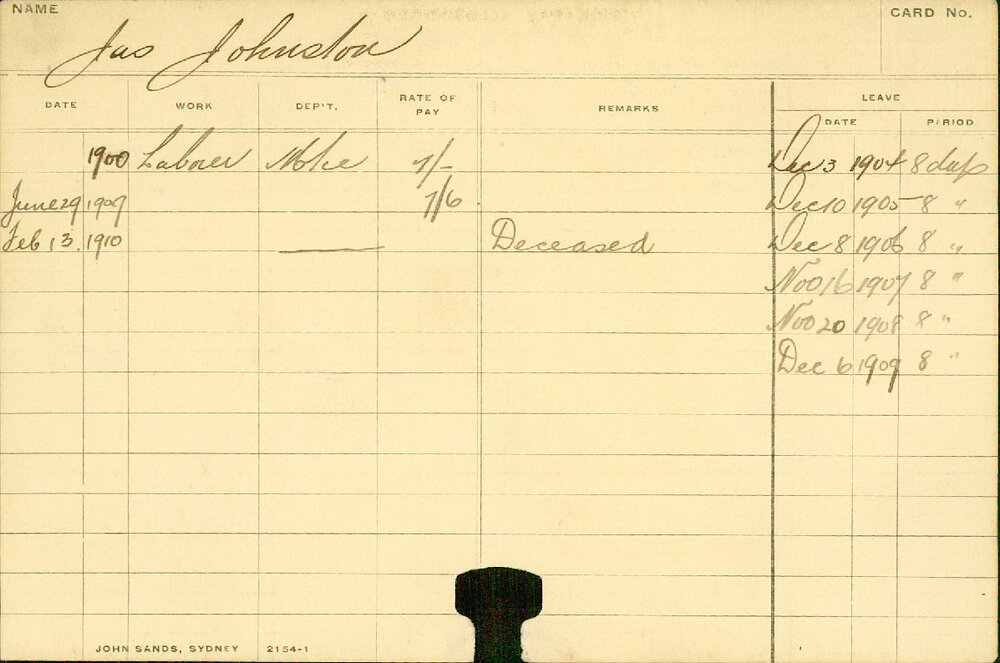 NAME
CARD No.
Jas Johnston
DATE WORK DEP'T. RATE OF PAY REMARKS LEAVE
DATE PERIOD
1900 Laborer Mke 7/- Dec 3 1904 8 days
June 29 1909 7/6 Dec 10 1905 8 "
Feb 13. 1910 Deceased Dec 8 1906 8 "
Nov 16 1907 8 "
Nov 20 1908 8 "
Dec 6 1909 8 "
JOHN SANDS, SYDNEY 2154-1